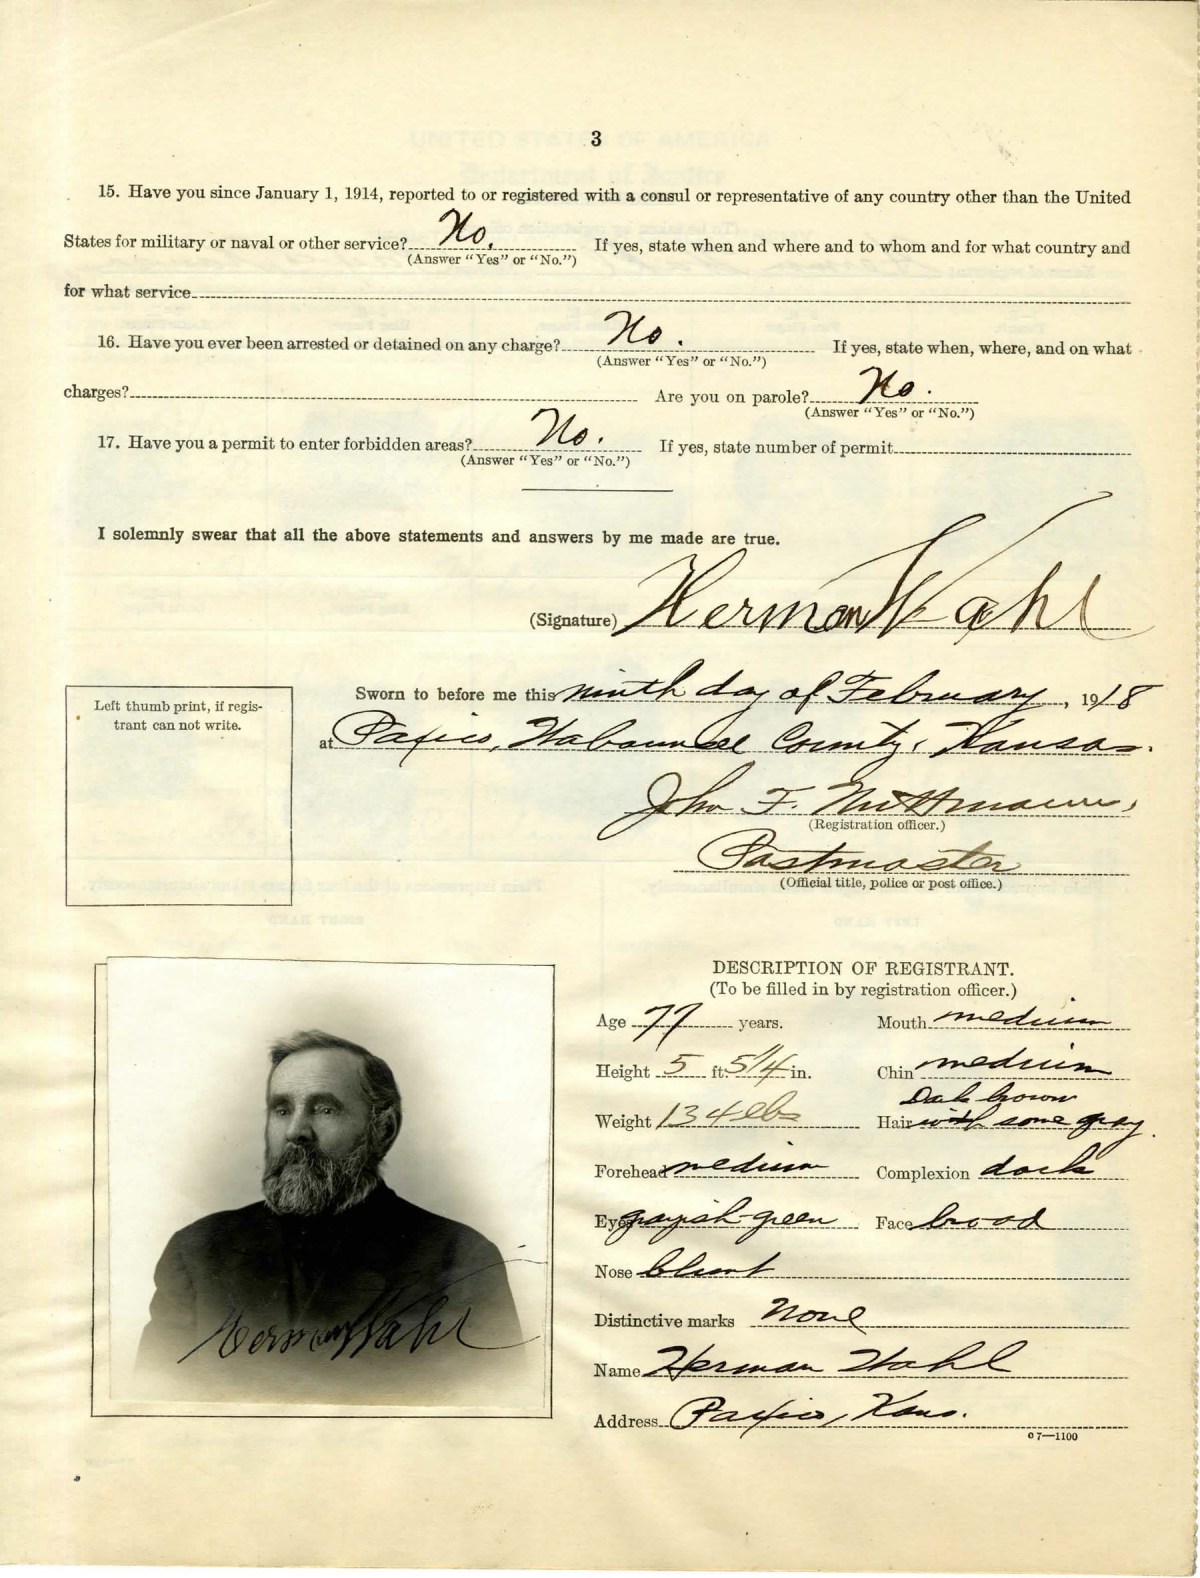 3
15. Have you since January 1, 1914, reported to or registered with a consul or representative of any country other than the United
States for military or naval or other service? No. If yes, state when and where and to whom and for what country and
(Answer "Yes" or "No.")
for what service
16. Have you ever been arrested or detained on any charge? No. If yes, state when, where, and on what
(Answer "Yes" or "No.")
charges? Are you on parole? No.
(Answer "Yes" or "No.")
17. Have you a permit to enter forbidden areas? No. If yes, state number of permit
(Answer "Yes" or "No.")
I solemnly swear that all the above statements and answers by me made are true.
(Signature) Herman Wahl
Sworn to before me this ninth day of February, 1918
at Paxico, Wabaunsee County, Kansas.
John F.
(Registration officer.)
Postmaster
(Official title, police or post office.)
Left thumb print, if regis-
trant can not write.
Herman Wahl
DESCRIPTION OF REGISTRANT.
(To be filled in by registration officer.)
Age 77 years. Mouth medium
Height 5 ft. 5 1/4 in. Chin medium
Dark brown
Weight 134 lbs Hair with some gray.
Forehead medium Complexion dark
Eyes grayish-green Face broad
Nose blunt
Distinctive marks None
Name Herman Wahl
Address Paxico, Kans.
c 7—1100